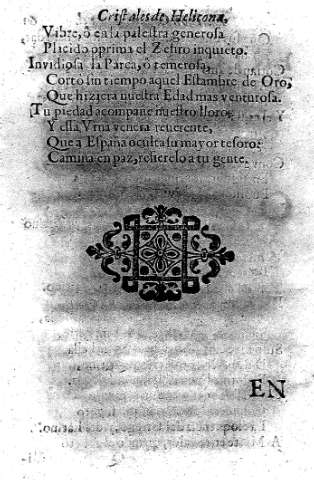 Cristales de Helicona,
Vibre, ò en la palestra generosa
Placido oprima el Zefiro inquieto.
Invidiosa la Parca, ò temerosa,
Cortò sin tiempo aquel Estambre de Oro,
Que hiziera nuestra Edad mas venturosa.
Tu piedad acompañe nuestro lloro,
Y essa Vrna venera reuerente,
Que a España oculta su mayor tesoro:
Camina en paz, refierelo a tu gente.
EN